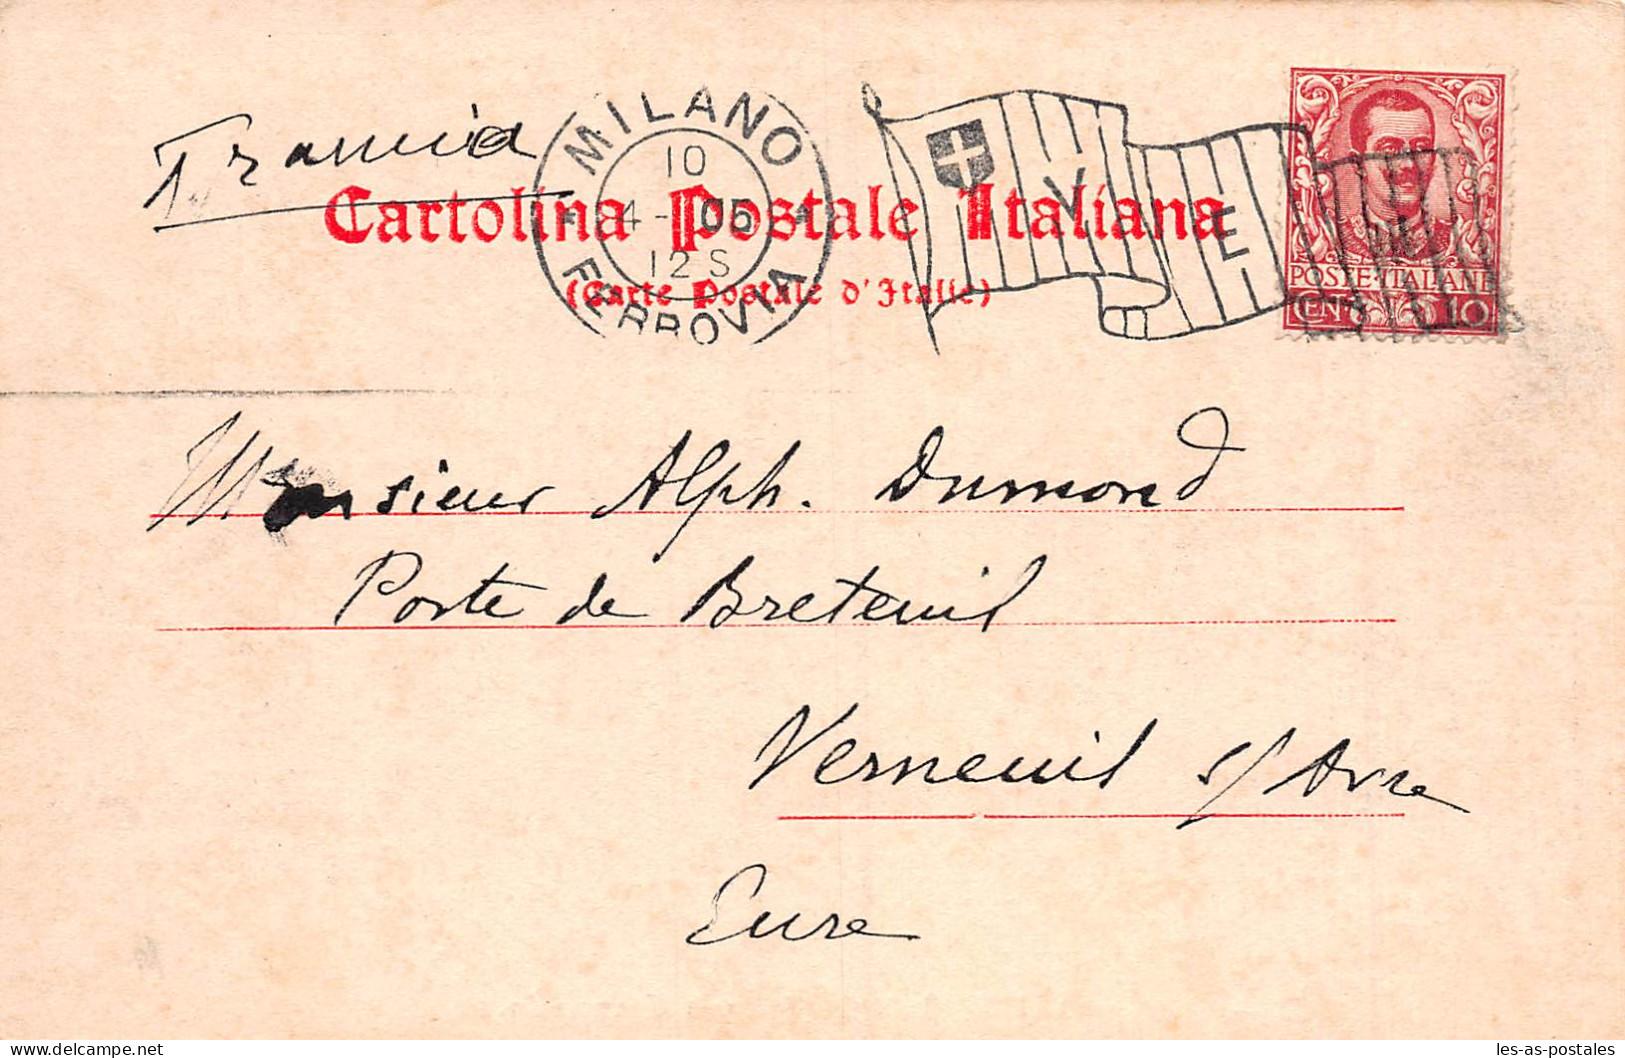 Francia
MILANO
FERROVIA
10
4- 05
12 S
V E
Cartolina Postale Italiana
(Carte Postale d'Italie)
POSTE·ITALIANE
CEN. 10
Monsieur Alph. Dumond
Porte de Breteuil
Verneuil s/ Avre
Eure
les-as-postales
www.delcampe.net